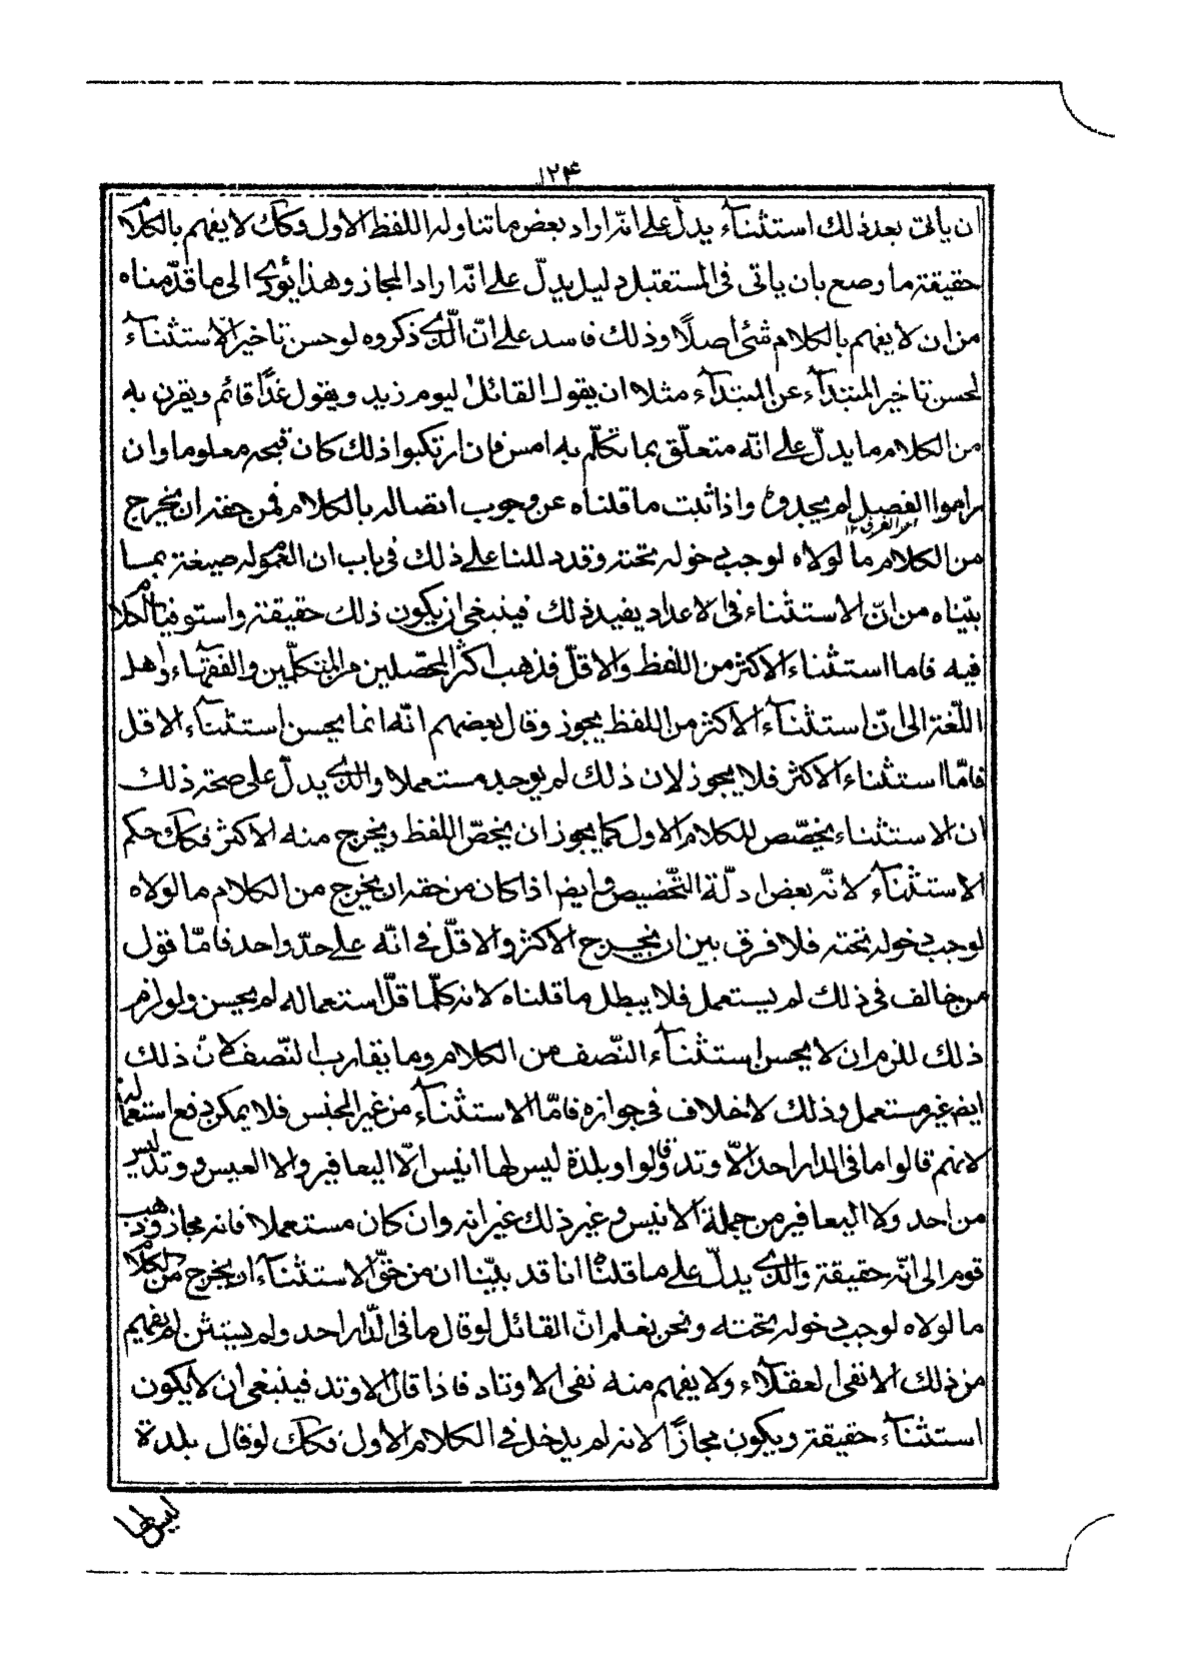 ١٢۴
ان ياتى بعد ذلك استثنآء يدلّ على انّه اراد بعض ما تناوله اللفظ الاول وكك لا يفهم بالكلام
حقيقة ما وضع بان ياتى فى المستقبل دليل يدلّ على انّه اراد المجاز وهذا يؤدى الى ما قدّمناه
من ان لا يفهم بالكلام شئ اصلًا وذلك فاسد على انّ الّذى ذكروه لو حسن تاخير الاستثنآء
لحسن تاخير المبتدآء عن المبتدآء مثلا ان يقول القائل اليوم زيد ويقول غدًا قائم ويقرن به
من الكلام ما يدلّ على انّه متعلّق بما تكلّم به امس فان ارتكبوا ذلك كان قبحه معلوما وان
راموا الفصل لم يجدوه واذا ثبت ما قلناه عن وجوب اتصاله بالكلام فمن حقه ان يخرج
من الكلام ما لولاه لوجب دخوله تحته وقد دللنا على ذلك فى باب ان العموم له صيغة بما
بيّناه من انّ الاستثناء فى الاعداد يفيد ذلك فينبغى ان يكون ذلك حقيقة واستوفينا الكلام
فيه فاما استثناء الاكثر من اللفظ والاقلّ فذهب اكثر المحصّلين من المتكلّمين والفقهآء واهل
اللّغة الى انّ استثنآء الاكثر من اللفظ يجوز وقال بعضهم انّه انما يحسن استثنآء الاقل
فامّا استثناء الاكثر فلا يجوز لان ذلك لم يوجد مستعملا والّذى يدلّ على صحة ذلك
ان الاستثناء يخصّص للكلام الاول كما يجوز ان يخصّ اللفظ ويخرج منه الاكثر فكك حكم
الاستثنآء لانّه بعض ادلّة التّخصيص وايضا اذا كان من حقه ان يخرج من الكلام ما لولاه
لوجب دخوله تحته فلا فرق بين ان يخرج الاكثر والاقلّ فى انّه على حدّ واحد فامّا قول
من خالف فى ذلك لم يستعمل فلا يبطل ما قلناه لانه كلّما قلّ استعماله لم يحسن ولو لزم
ذلك للزم ان لا يحسن استثنآء النّصف من الكلام وما يقارب النّصف لانّ ذلك
ايضا غير مستعمل وذلك لا خلاف فى جوازه فامّا الاستثنآء من غير الجنس فلا يمكن دفع استعماله
لانهم قالوا ما فى الدار احد الّا وتد وقالوا وبلدة ليس لها انيس الّا اليعافير والا العيس ووتد ليس
من احد ولا اليعافير من جملة الانيس وغير ذلك غير انه وان كان مستعملا فانه مجاز وذهب
قوم الى انّه حقيقة والّذى يدلّ على ما قلناه انا قد بيّنا ان من حقّ الاستثنآء ان يخرج من الكلام
ما لولاه لوجب دخوله تحته ونحن نعلم انّ القائل لو قال ما فى الدّار احد ولم يستثن لم يفهم
من ذلك الا نفى العقلآء ولا يفهم منه نفى الاوتاد فاذا قال الا وتد فينبغى ان لا يكون
استثنآء حقيقة ويكون مجازًا لانه لم يدخل فى الكلام الاول فكك لو قال بلدة
ليس لها